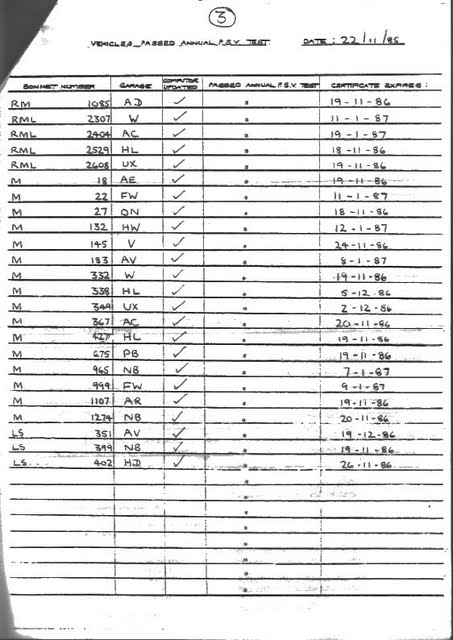 3
VEHICLES PASSED ANNUAL P.S.V. TEST DATE: 22/11/85
BONNET NUMBER GARAGE COMPUTOR UPDATED PASSED ANNUAL P.S.V. TEST CERTIFICATE EXPIRES:
RM 1085 AD ✓ " 19-11-86
RML 2307 W ✓ " 11-1-87
RML 2404 AC ✓ " 19-1-87
RML 2529 HL ✓ " 18-11-86
RML 2608 UX ✓ " 19-11-86
M 18 AE ✓ " 19-11-86
M 22 FW ✓ " 11-1-87
M 27 ON ✓ " 18-11-86
M 132 HW ✓ " 12-1-87
M 145 V ✓ " 24-11-86
M 183 AV ✓ " 8-1-87
M 332 W ✓ " 19-11-86
M 338 HL ✓ " 5-12-86
M 349 UX ✓ " 2-12-86
M 367 AC ✓ " 20-11-86
M 427 HL ✓ " 19-11-86
M 675 PB ✓ " 19-11-86
M 965 NB ✓ " 7-1-87
M 999 FW ✓ " 9-1-87
M 1107 AR ✓ " 19-11-86
M 1274 NB ✓ " 20-11-86
LS 351 AV ✓ " 19-12-86
LS 399 NB ✓ " 19-11-86
LS 402 HD ✓ " 26-11-86
"
"
"
"
"
"
"
"